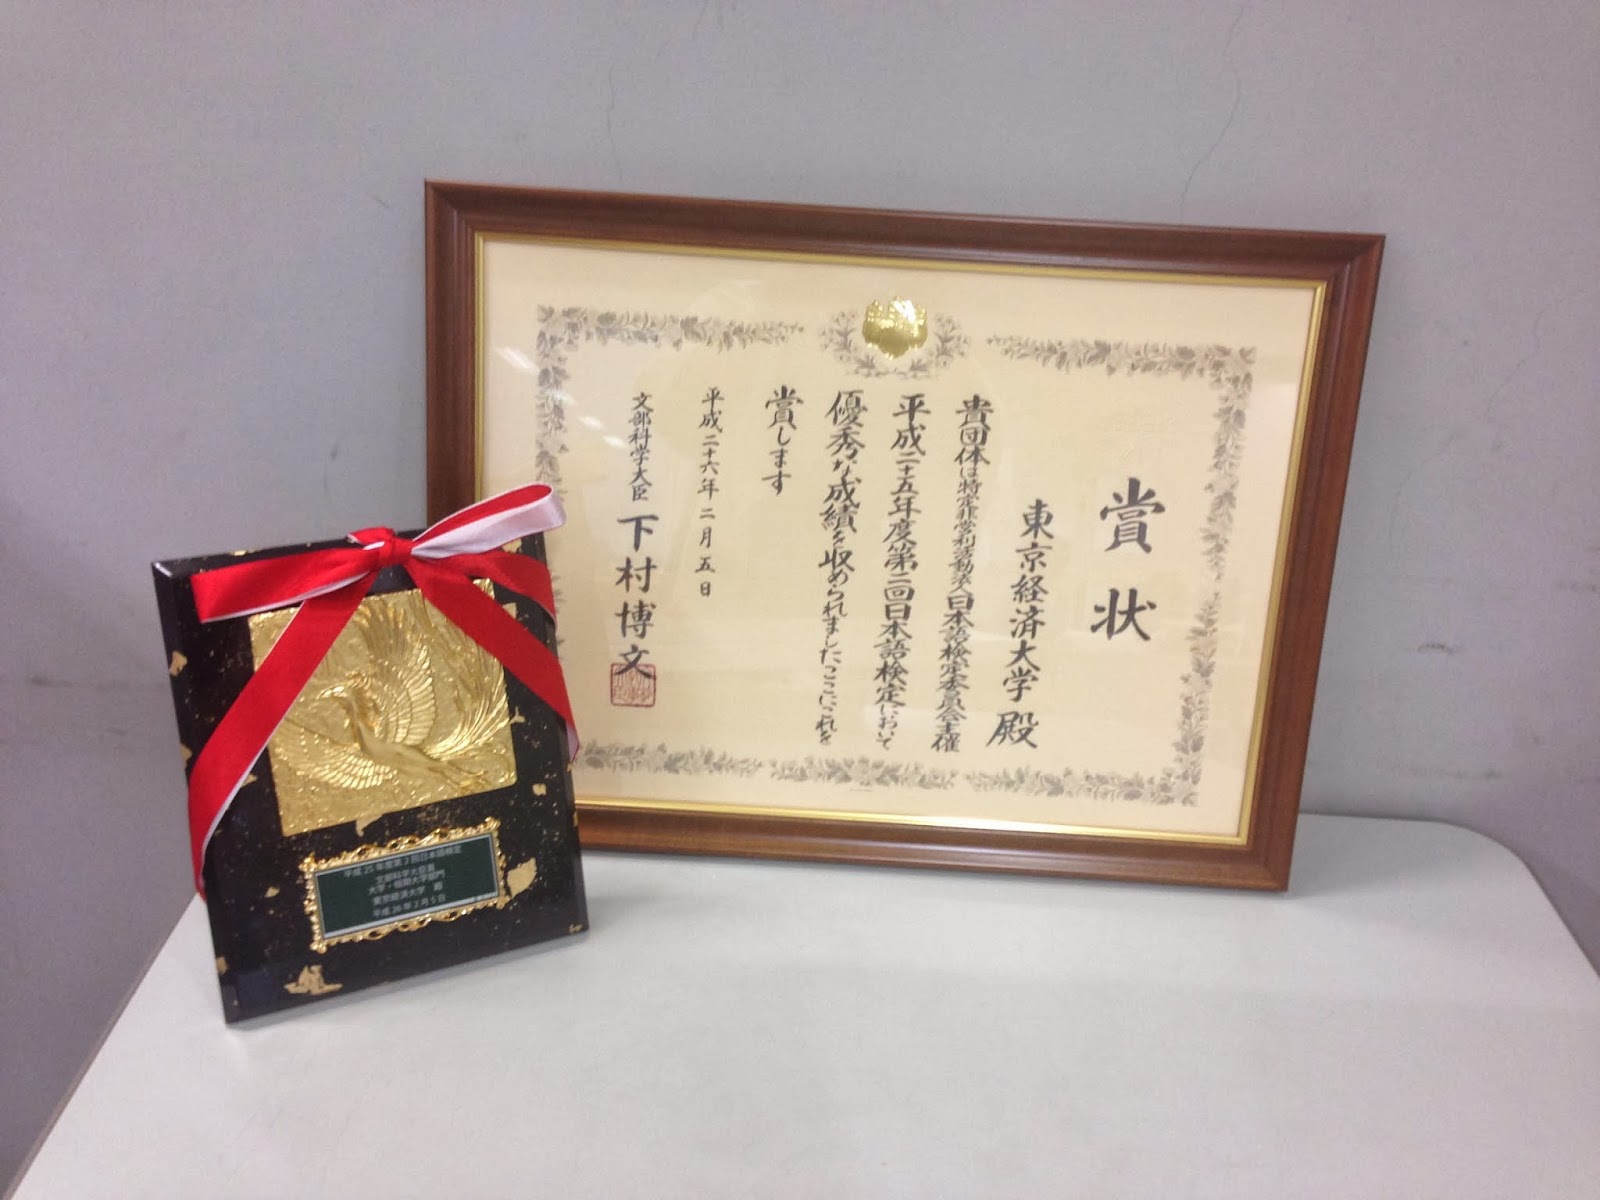 賞状
東京経済大学 殿
貴団体は特定非営利活動法人日本語検定委員会主催
平成二十五年度第二回日本語検定において
優秀な成績を収められましたここにこれを
賞します
平成二十六年 二月 五日
文部科学大臣 下村博文
平成25年度第2回日本語検定
文部科学大臣賞
大学・短期大学部門
東京経済大学 殿
平成26年2月5日